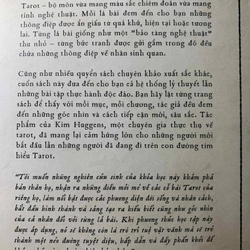 Tarot – bộ môn vừa mang màu sắc chiêm đoán vừa mang
tính nghệ thuật. Mỗi lá bài đem đến cho bạn những
thông điệp được ẩn giấu từ quá khứ, hiện tại hoặc tương
lai. Từng lá bài giống như một “bảo tàng nghệ thuật”
thu nhỏ – từng bức tranh được gửi gắm trong đó đều
chứa những thông điệp về nhân sinh quan.
Cũng như nhiều quyển sách chuyên khảo xuất sắc khác,
cuốn sách này đưa đến cho bạn cả hệ thống lý thuyết lẫn
những bài thực hành độc đáo. Bạn hãy lật từng trang
sách để thấy với mỗi mục, mỗi chương, tác giả đều đem
đến những góc nhìn và cách tiếp cận mới, sâu sắc. Tác
phẩm của Kim Huggens, một chuyên gia thực thụ về
tarot, đã mang lại cảm hứng lớn cho những người mới
bắt đầu lẫn những người đã đang đi trên con đường tìm
hiểu Tarot.
“Tôi muốn những nghiên cứu sinh của khóa học này khám phá
bản thân họ, nhận ra những điều mới mẻ về các cỗ bài Tarot của
riêng họ, làm nổi bật được các phương diện đời sống và nhân sách,
bắt đầu hình thành và sáng tạo ra kiểu biểu cũng như góc nhìn
của cá nhân đối với từng lá bài. Khi phương thức học tập này
được áp dụng, nó sẽ không còn là trò trí tuệ vặt vãnh mà sẽ trở
thành một nét đường tuyệt diệu, hấp dẫn và đầy phấn khích để